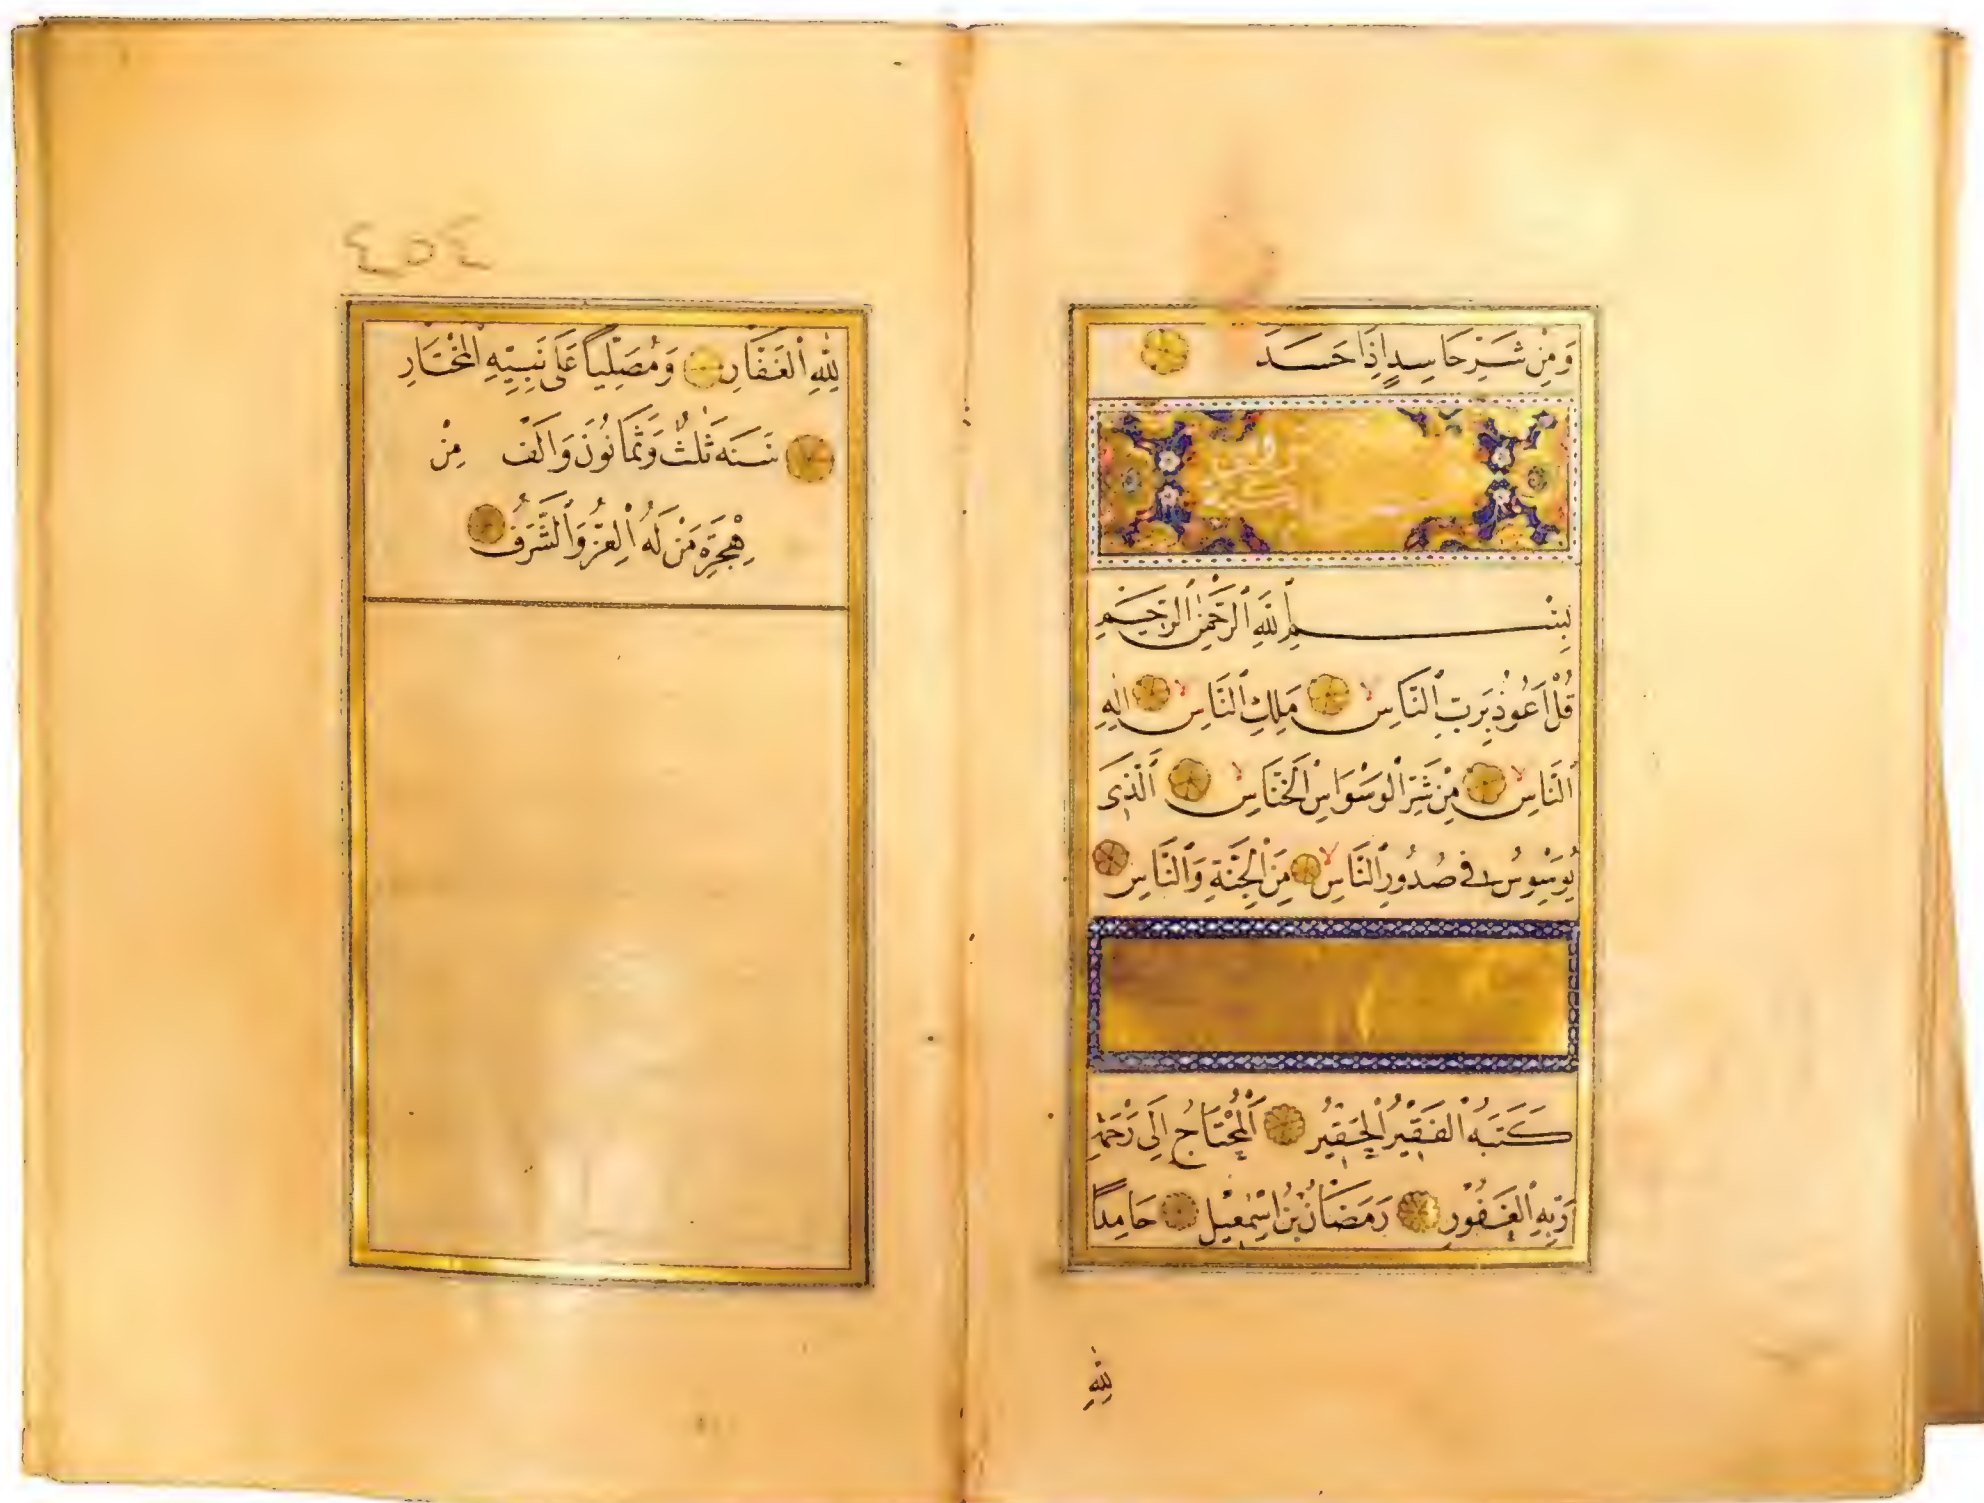 وَمِنْ شَرِّ حَاسِدٍ اِذَا حَسَدَ
بِسْمِ اللّٰهِ الرَّحْمٰنِ الرَّحِيمِ
قُلْ اَعُوذُ بِرَبِّ النَّاسِ لا مَلِكِ النَّاسِ لا اِلٰهِ
النَّاسِ لا مِنْ شَرِّ الْوَسْوَاسِ الْخَنَّاسِ لا اَلَّذِى
يُوَسْوِسُ فِى صُدُورِ النَّاسِ لا مِنَ الْجِنَّةِ وَالنَّاسِ
كَتَبَهُ الْفَقِيْرُ الْحَقِيْرُ اَلْمُحْتَاجُ اِلَى رَحْمَةِ
رَبِّهِ الْغَفُوْرِ رَمَضَانُ بْنُ اِسْمٰعِيْل حَامِداً
لِلّٰهِ
لِلّٰهِ الْغَفَّارِ وَمُصَلِّياً عَلَى نَبِيِّهِ الْمُخْتَارِ
سَنَه ثَلٰثٌ وَثَمَانُونَ وَاَلْف مِنْ
هِجْرَةِ مَنْ لَهُ الْعِزُّ وَالشَّرَفُ